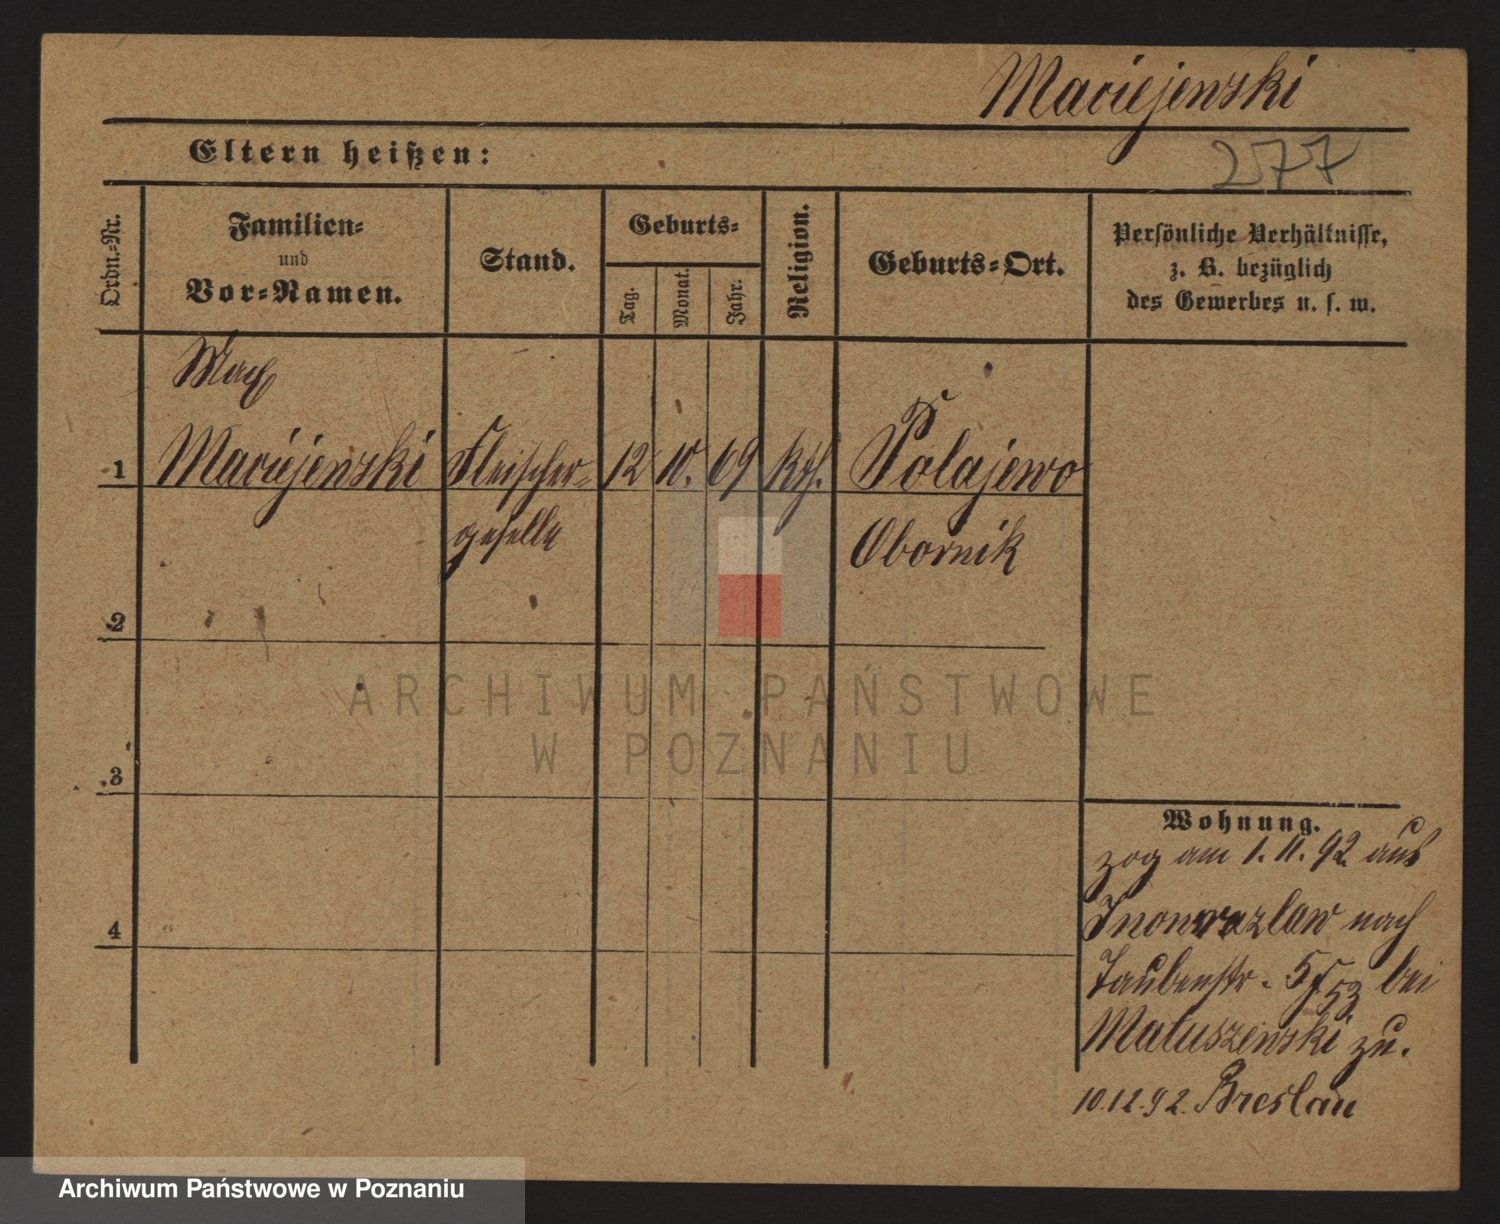 Maciejewski
Eltern heißen:
277
Ordn.-Nr.
Familien-
und
Vor-Namen.
Stand.
Geburts-
Tag.
Monat.
Jahr.
Religion.
Geburts-Ort.
Persönliche Verhältnisse,
z. B. bezüglich
des Gewerbes u. s. w.
Max
1 Maciejewski Fleischer- 12 10. 69 kth. Polajewo
geselle Obornik
2
3
4
Wohnung.
zog am 1. 11. 92 aus
Inowrazlaw nach
Taubenstr. 5 bei
Matuszewski zu.
10.12.92. Breslau
ARCHIWUM PAŃSTWOWE
W POZNANIU
Archiwum Państwowe w Poznaniu